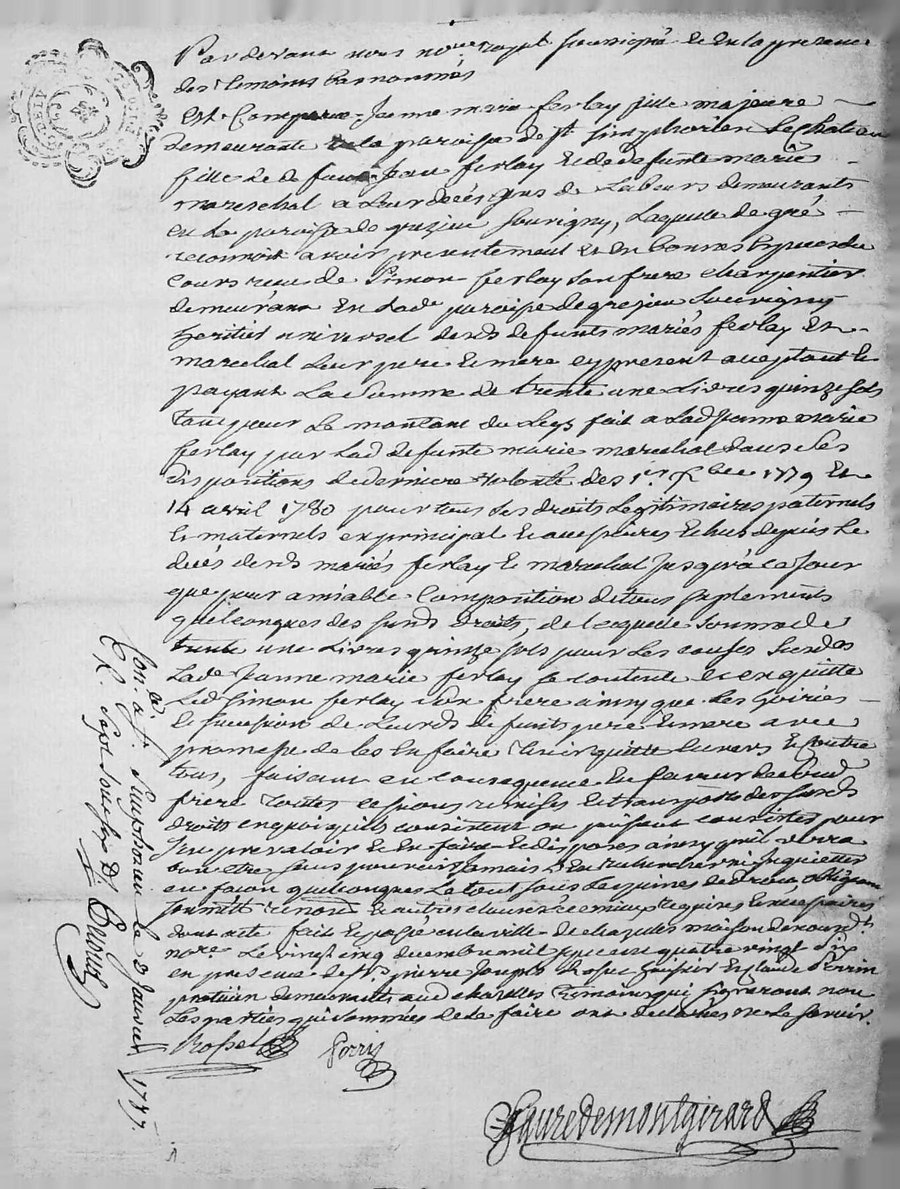 Par devant nous no.re royal soussigné et en la presence
des temoins bas nommés
Est Comparue Janne marie ferlay fille majeure
demeurante en la paroisse de St Simphorien Le chateau
fille de defunts Jean ferlay et de defunte marie
mareschal a Leur decés gens de Labeurs demeurants
en La paroisse de grezieu Souvigny, Laquelle de gré
reconnoit avoir presentement et en bonnes Especes du
Cours reçu de Simon ferlay son frere charpentier
demeurant En lad.e paroisse de grezieu Souvigny
heritier universel desds defunts mariés ferlay et
marechal Leur pere et mere cy present acceptant et
payant La Somme de trente une Livres quinze sols
tant pour Le montant du Legs fait a Lad Janne marie
ferlay par Lad defunte marie marechal dans Ses
dispositions de derniere volonté des 1.r Xbre 1779 Et
14 avril 1780 pour tous Ses droits Legitimaires paternels
et maternels en principal et accessoires Echus depuis Le
decés desds mariés ferlay et marechal jusqu'a ce Jour
que pour amiable Composition de tous Suplements
quelconques des susds droits, de laquelle Somme de
trente une Livres quinze sols pour Les causes Susdes
Lade Janne marie ferlay se contente et en quitte
Led Simon ferlay Son frere ainsy que Les hoiries
et sucession de Leursds defunts pere et mere avec
promesse de Les En faire tenir quitte Envers et contre
tous, faisant en consequence En faveur de sond
frere toutes cessions remises et transports des susds
droits en quoi qu'ils consistent ou puissent consister pour
S'en prevaloir et En faire et disposer ainsy qu'il verra
bon Etre sans pouvoir Jamais Etre recherché ni Inquietté
en façon quelconques Le tout sous Les peines de droit obligeon
soumitt renond et autres clauses
dont acte fait Et passé en la ville de chazelles maison de nous dt
nore. Le vingt cinq decembre mil sept cent quatre vingt six
en presence de Srs pierre Joseph Rosset et Claude Perrin
praticien demeurants aud chazelles temoins qui signeront non
Les parties qui sommées de le faire ont declarées ne Le savoir.
Rosset Perrin
fauredemontgirard
Con.lé a St Simphorien Le 3 Janvier 1787.
R. Sept Sous six d.